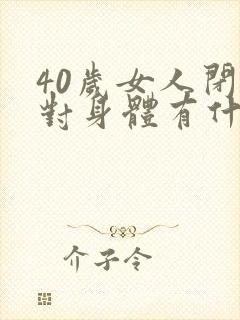 40歲女人閉
對身體有什
介子令